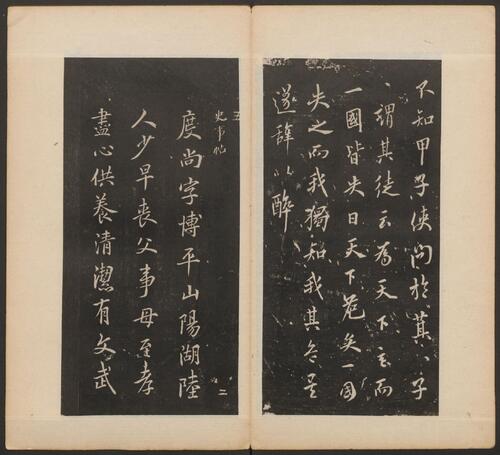 不知甲子使問於箕〻子
〻謂其徒云為天下主而
一國皆失日天下危矣一國
失之而我獨知我其
遂辭以醉
五
史事帖
二
度尚字博平山陽湖陸
人少早喪父事母至孝
盡心供養清潔有文武